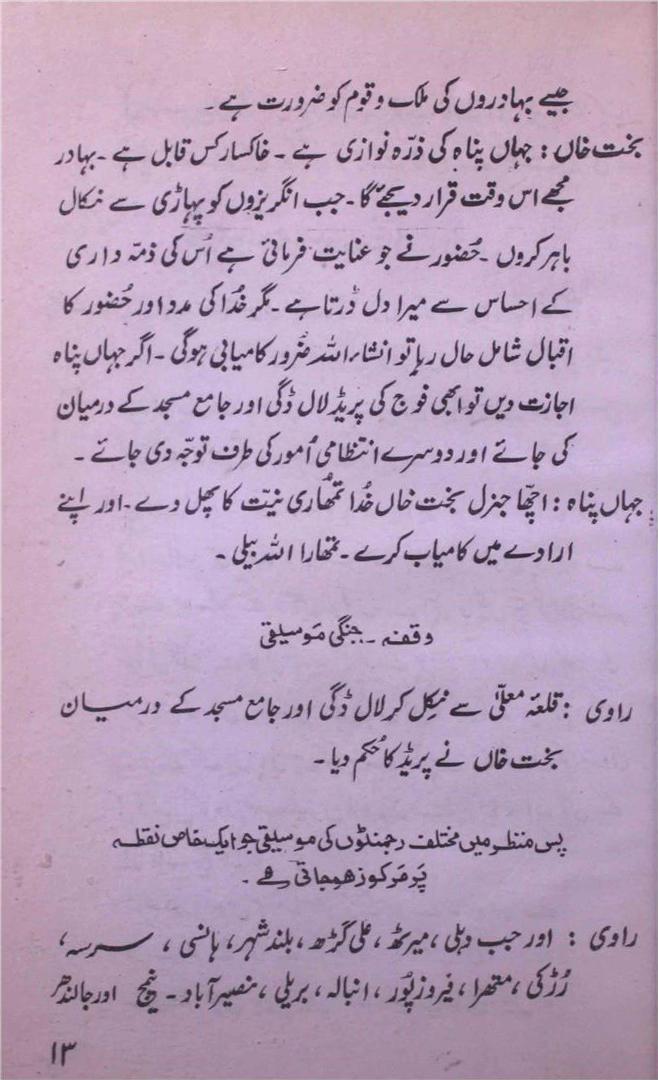 جیسے بہادروں کی ملک و قوم کو ضرورت ہے۔
بخت خاں : جہاں پناہ کی ذرّہ نوازی ہے ۔ خاکسار کس قابل ہے ۔ بہادر
مجھے اس وقت قرار دیجئے گا ۔ جب انگریزوں کو پہاڑی سے نکال
باہر کروں ۔ حُضور نے جو عنایت فرمائی ہے اُس کی ذمّہ داری
کے احساس سے میرا دل ڈرتا ہے ۔ مگر خُدا کی مدد اور حُضور کا
اقبال شامل حال رہا تو انشاء اللہ ضرور کامیابی ہوگی ۔ اگر جہاں پناہ
اجازت دیں تو ابھی فوج کی پریڈ لال ڈگی اور جامع مسجد کے درمیان
کی جائے اور دوسرے انتظامی اُمور کی طرف توجّہ دی جائے ۔
جہاں پناہ : اچّھا جنرل بخت خاں خُدا تمُھاری نیّت کا پھل دے ۔ اور اپنے
ارادے میں کامیاب کرے ۔ تمھارا اللہ بیلی ۔
وقفہ ۔ جنگی مَوسیقی
راوی : قلعۂ معلّیٰ سے نِکل کر لال ڈگی اور جامع مسجد کے درمیان
بخت خاں نے پریڈ کا حُکم دیا ۔
پس منظر میں مختلف رجمنٹوں کی موسیقی جو ایک خاص نقطہ
پَر مَرکوز ھوجاتی ھے ۔
راوی : اور جب دہلی ، میرٹھ ، علی گڑھ ، بلند شہر ، ہانسی ، سرسہ ،
رُڑکی ، متھرا ، فیروز پوُر ، انبالہ ، بریلی ، نصیرآباد ۔ نیمچ اور جالندھر
۱۳